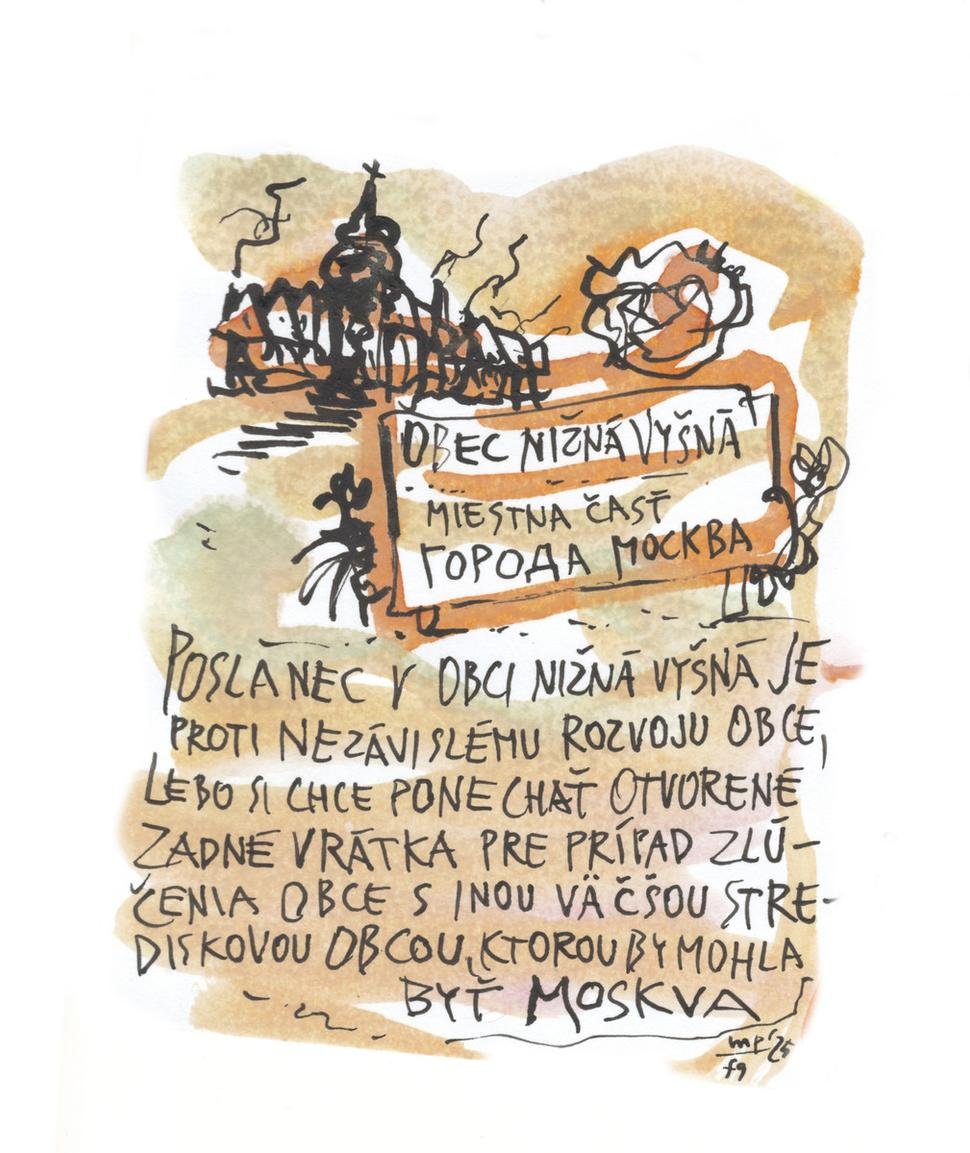 OBEC NIŽNÁ VYŠNÁ
MIESTNA ČASŤ
ГОРОДА МОСКВА
POSLANEC V OBCI NIŽNÁ VYŠNÁ JE
PROTI NEZÁVISLÉMU ROZVOJU OBCE,
LEBO SI CHCE PONECHAŤ OTVORENÉ
ZADNÉ VRÁTKA PRE PRÍPAD ZLÚ-
ČENIA OBCE S INOU VÄČŠOU STRE-
DISKOVOU OBCOU, KTOROU BY MOHLA
BYŤ MOSKVA
mp'25
fg